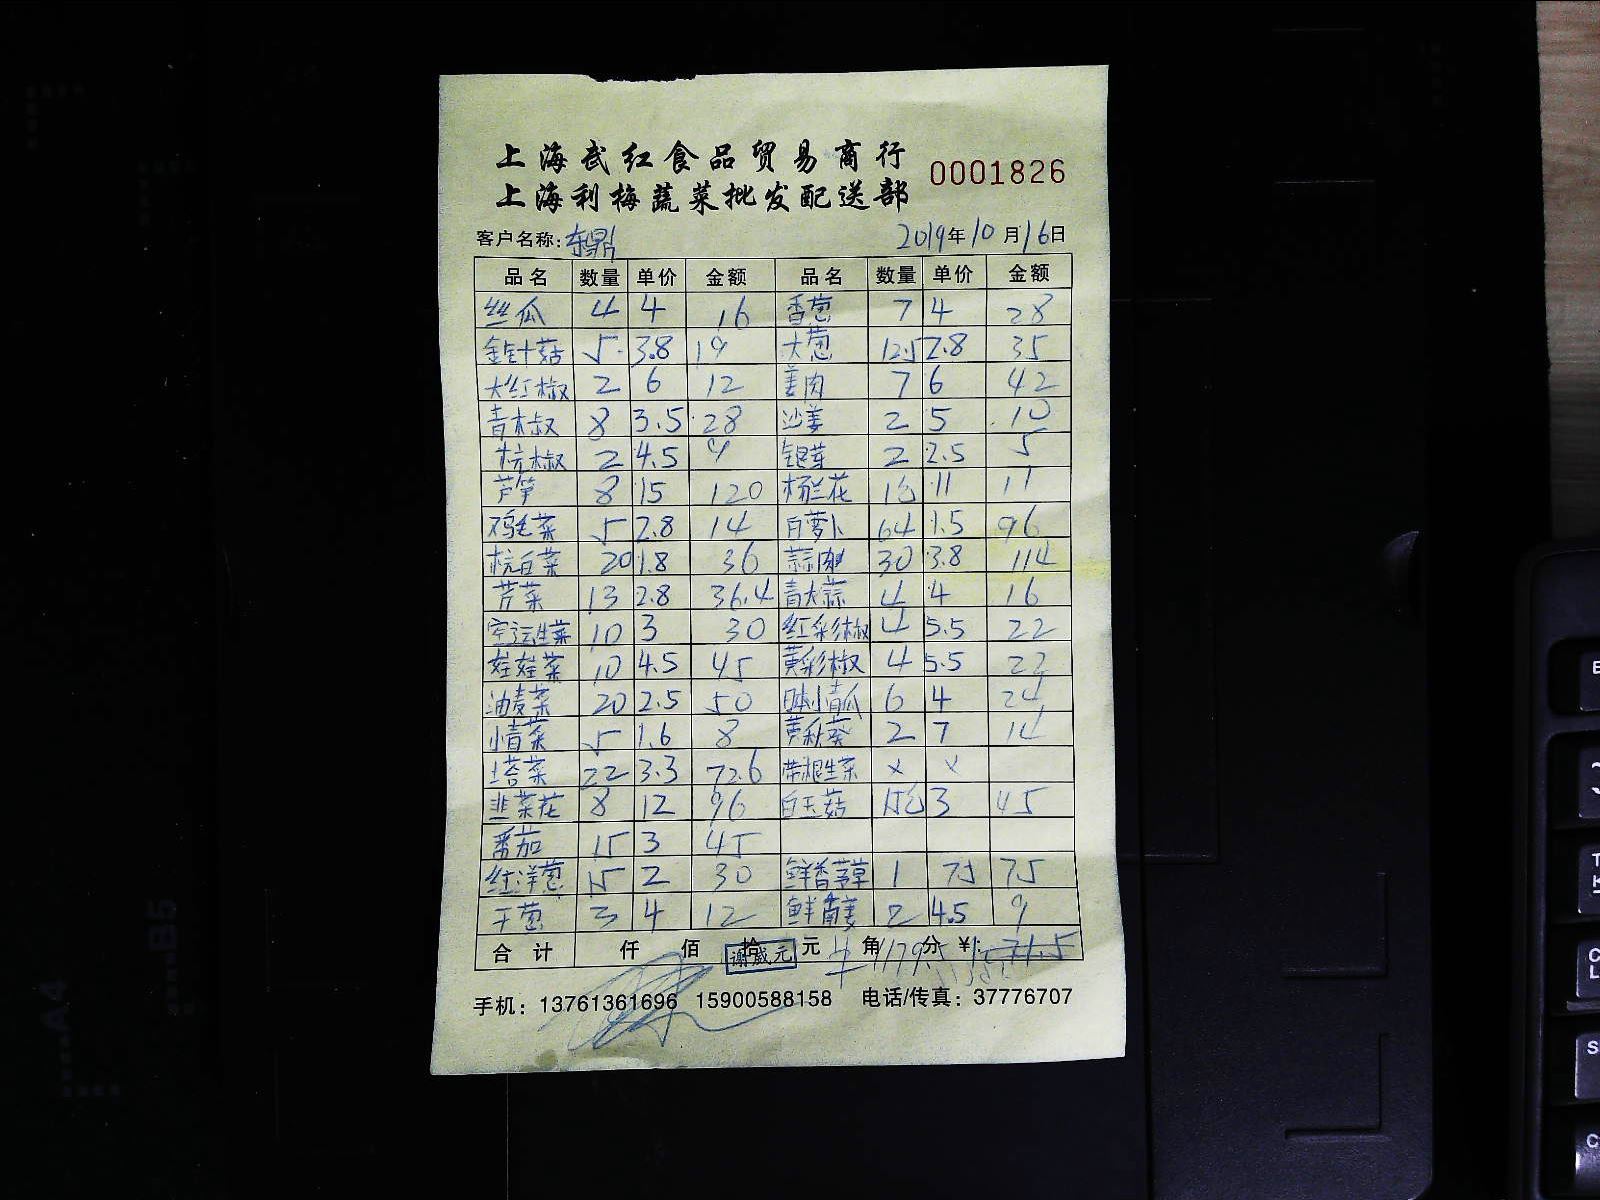 上海武红食品贸易商行
上海利梅蔬菜批发配送部 0001826
客户名称:东鼎 2019年10月16日
品名 数量 单价 金额 品名 数量 单价 金额
丝瓜 4 4 16 香葱 7 4 28
金针菇 5 3.8 19 大葱 12.5 2.8 35
大红椒 2 6 12 姜肉 7 6 42
青椒 8 3.5 28 沙姜 2 5 10
杭椒 2 4.5 9 银芽 2 2.5 5
芦笋 8 15 120 杨兰花 1包 11 11
鸡毛菜 5 2.8 14 白萝卜 64 1.5 96
杭白菜 20 1.8 36 蒜肉 30 3.8 114
芹菜 13 2.8 36.4 青大蒜 4 4 16
空运生菜 10 3 30 红彩椒 4 5.5 22
娃娃菜 10 4.5 45 黄彩椒 4 5.5 22
油麦菜 20 2.5 50 日本小青瓜 6 4 24
小青菜 5 1.6 8 黄秋葵 2 7 14
塔菜 22 3.3 72.6 带根生菜 × ×
韭菜花 8 12 96 白玉菇 15包 3 45
番茄 15 3 45
红洋葱 15 2 30 鲜香茅草 1 75 75
干葱 3 4 12 鲜南姜 2 4.5 9
合计 仟 佰 拾 元 角 分 ¥:
谢威元
手机: 13761361696 15900588158 电话/传真: 37776707